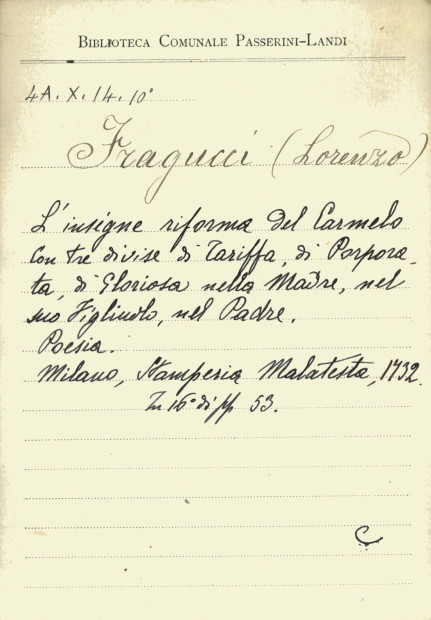 BIBLIOTECA COMUNALE PASSERINI-LANDI
4A. X. 14. 10°
Fragucci (Lorenzo)
L'insigne riforma del Carmelo
con tre divise di Tariffa, di Porpora-
ta, di Gloriosa nella Madre, nel
suo Figliuolo, nel Padre.
Poesia.
Milano, Stamperia Malatesta, 1732.
In 16° di pp 53.
C